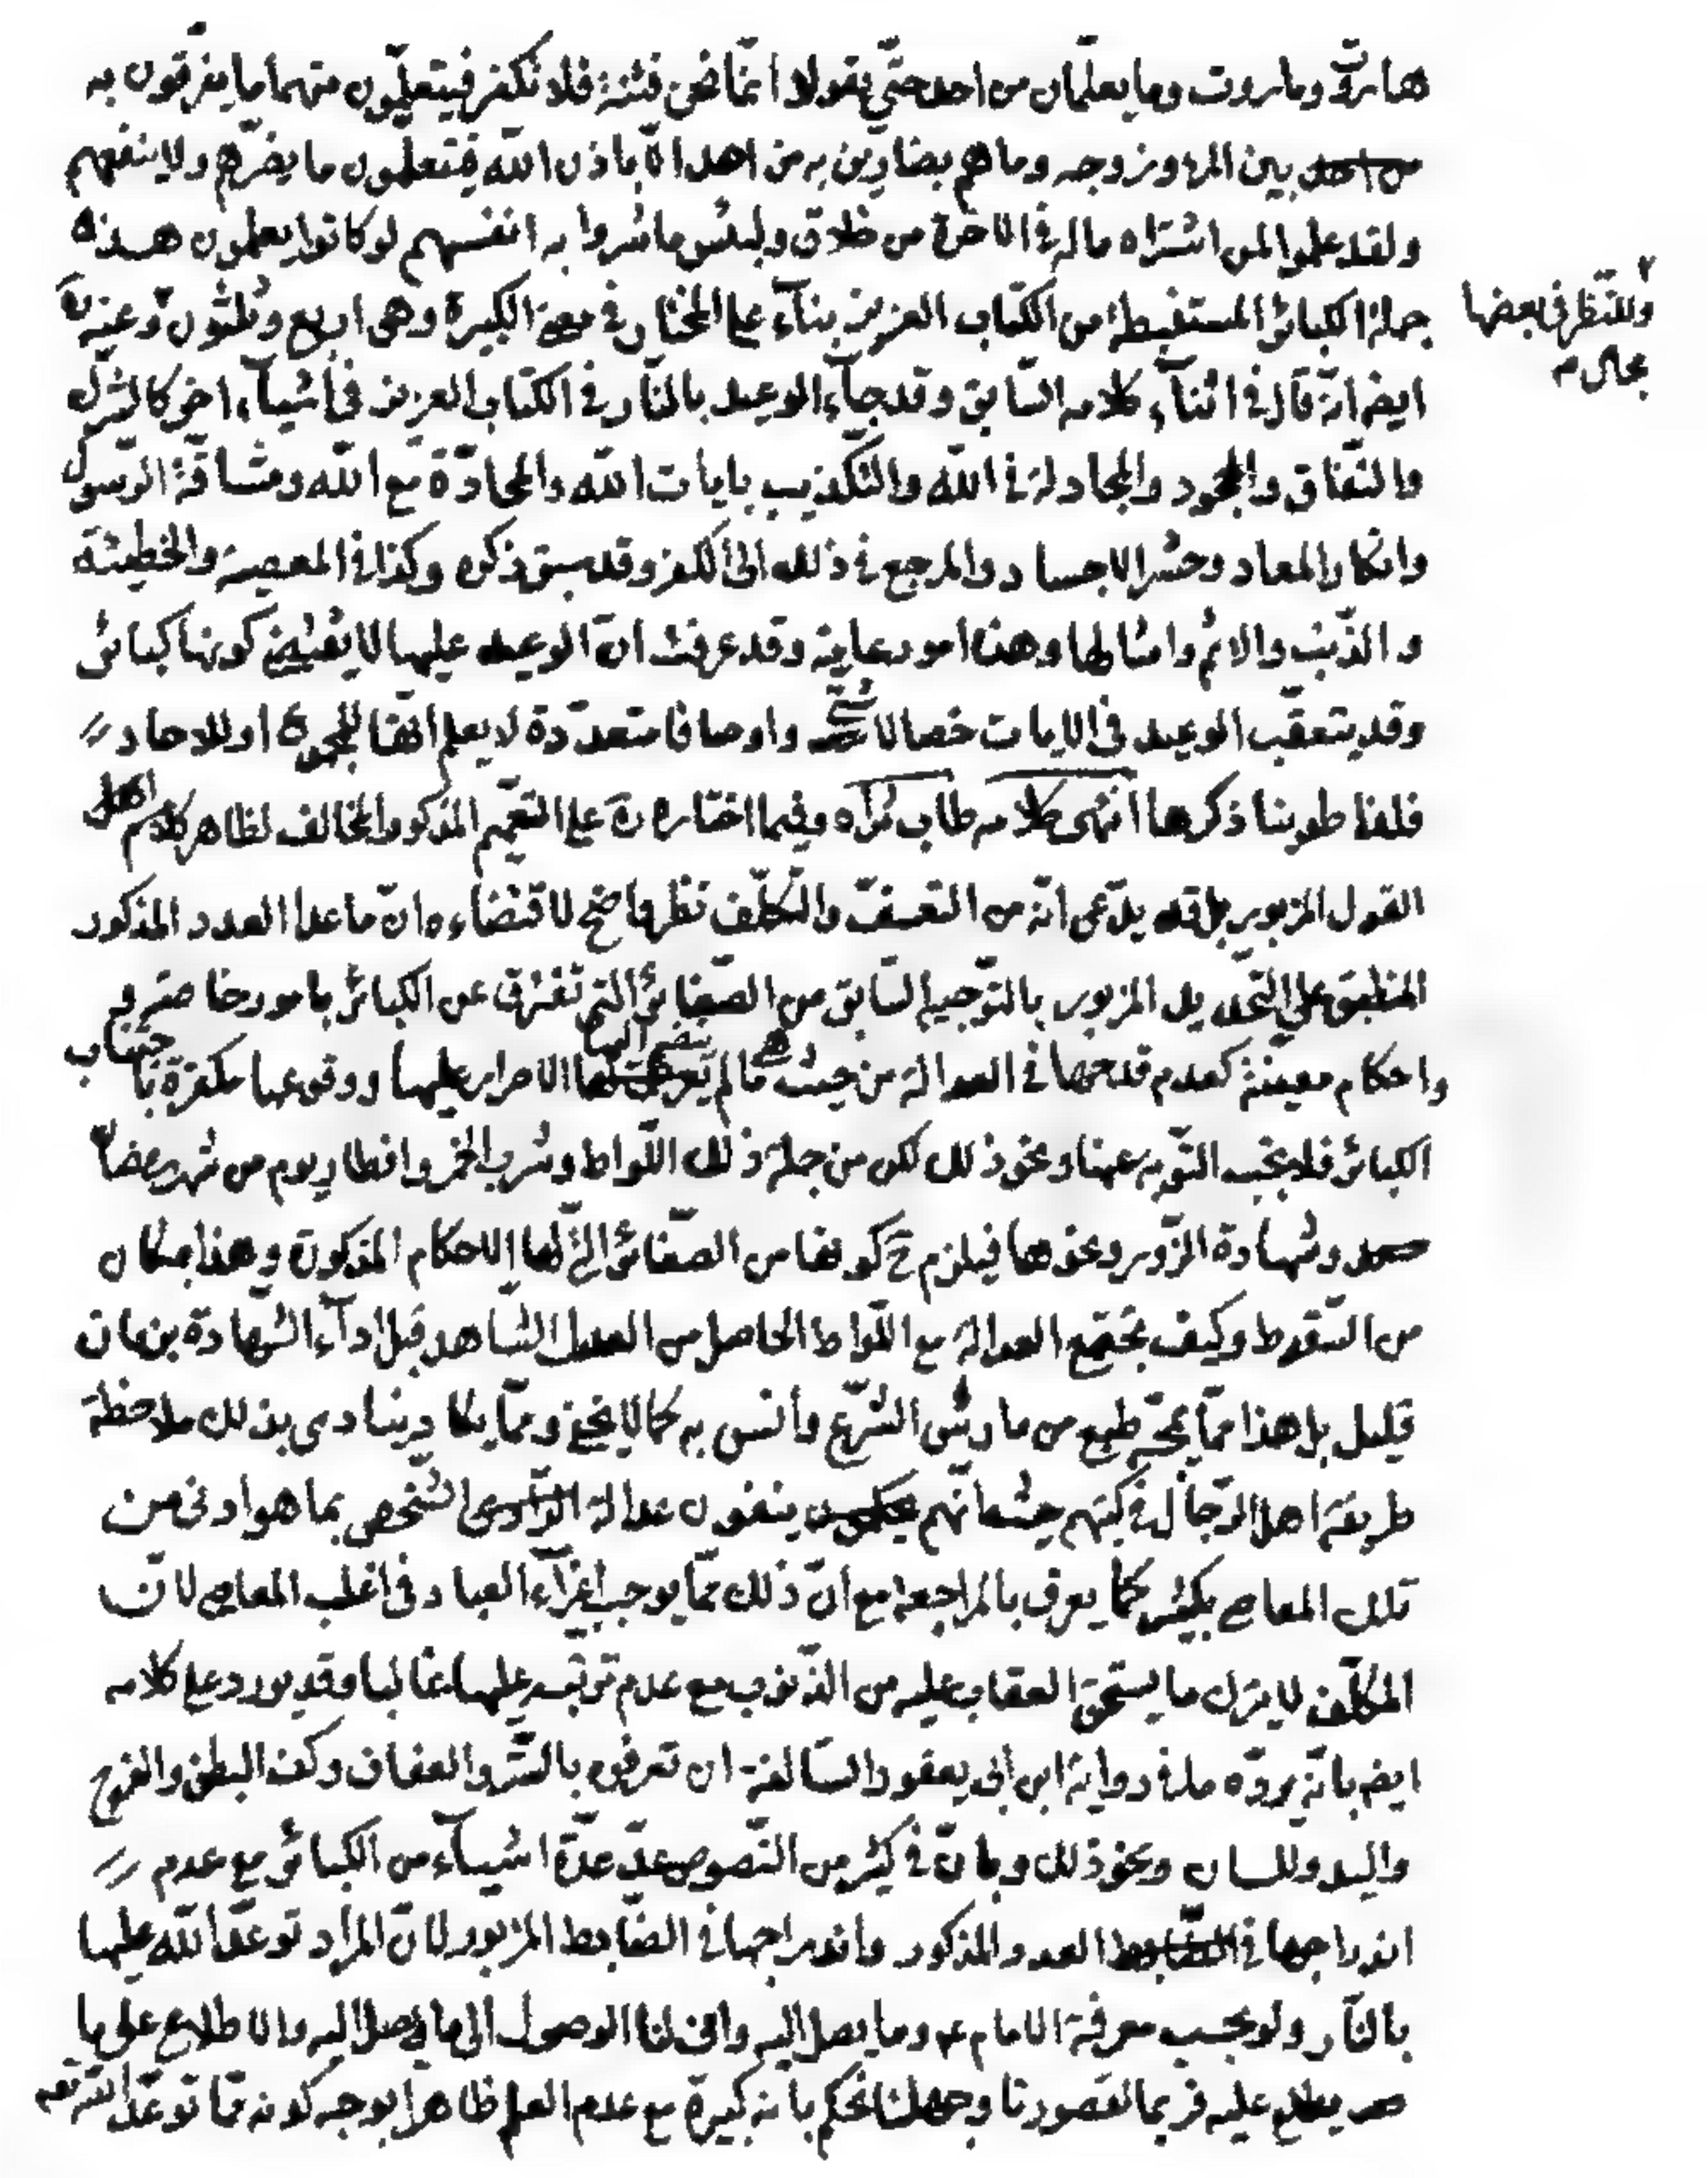 هاروت وماروت وما يعلّمان من احد حتّى يقولا انّما نحن فتنة فلا تكفر فيتعلّمون منهما ما يفرّقون به
بين المرء وزوجه وما هم بضارّين به من احد الّا باذن اللّه فيتعلّمون ما يضرّهم ولا ينفعهم
ولقد علموا لمن اشتراه ماله في الاخرة من خلاق ولبئس ما شروا به انفسهم لو كانوا يعلمون هذه
جملة الكبائر المستنبطة من الكتاب العزيز بناء على المختار في معنى الكبيرة وهي اربع وثلثون وعنه ره
وللنّظر في بعضها
مجال منه
ايض انّه قال في اثناء كلامه السّابق وقد جاء الوعيد بالنّار في الكتاب العزيز في اشياء اخر كالشرك
والنّفاق والجحود والمجادلة في اللّه والتكذيب بايات اللّه والمحادّة مع اللّه ومشاقّة الرّسول
وانكار المعاد وحشر الاجساد والمرجع في ذلك الى الكفر وقد سبق ذكره وكذا في المعصية والخطيئة
والذّنب والاثم وامثالها وهذه امور عامّة وقد عرفت انّ الوعيد عليها لا يقتضي كونها كبائر
وقد يتعقّب الوعيد في الايات خصالا شتّى واوصافا متعدّدة لا يعلم انّها للمجموع او للاحاد
فلذا طوينا ذكرها انتهى كلامه طاب ثراه وفيما اختاره ره على التعميم المذكور المخالف لظاهر كلام اهل
القول المزبور بل قد يدّعى انّه من التعسّف والتكلّف نظر واضح لاقتضاءه انّ ما عدا العدد المذكور
المنطبق على التحديد المزبور بالتّوجيه السّابق من الصّغائر التي تفترق عن الكبائر بامور خاصّة و
واحكام معيّنة كعدم قدحها في العدالة من حيث هي ما لم ينضم اليها الاصرار عليها ووقوعها مكفرة باجتناب
الكبائر فلا يجب التّوبة عنها ونحو ذلك لكن من جملة ذلك اللّواط وشرب الخمر وافطار يوم من شهر رمضان
وشهادة الزّور ونحوها فيلزم ح كونها من الصّغائر الّتي لها الاحكام المذكورة وهذا بمكان
من السّقوط وكيف تجتمع العدالة مع اللّواط الحاصل من العدل الشاهد قبل اداء الشّهادة بزمان
قليل بل هذا ممّا يمجّه طبع من مارس الشّرع وأنس به كما لا يخفى وممّا يكاد ينادى بذلك ملاحظة
طريقة اهل الرّجال في كتبهم حيث انّهم ينفون عدالة الشّخص بما هو ادنى من
تلك المعاصي بكثير كما يعرف بالمراجعة مع انّ ذلك ممّا يوجب اغراء العباد في اغلب المعاصي لانّ
المكلّف لا يترك ما يستحق العقاب عليه من الذّنوب مع عدم ترتّبه عليها غالبا وقد يورد على كلامه
ايض بانّه يردّه ما في رواية ابن ابي يعفور السّالفة ان تعرفوه بالسّتر والعفاف وكف البطن والفرج
واليد واللسان ونحو ذلك وبانّ في كثير من النّصوص عدّ عدّة اشياء من الكبائر مع عدم
اندراجها في العدد المذكور واندراجها في الضّابط المزبور لانّ المراد توعّد اللّه عليها
بالنّار ولو بحسب معرفة الامام ع وما يصل اليه وانّى لنا الوصول الى ما يصل اليه والاطلاع على ما
يطلع عليه فربما لقصورنا وجهلنا نحكم بانه كبيرة مع عدم العلم ظاهرا بوجه كونه ممّا توعّد اللّه تع